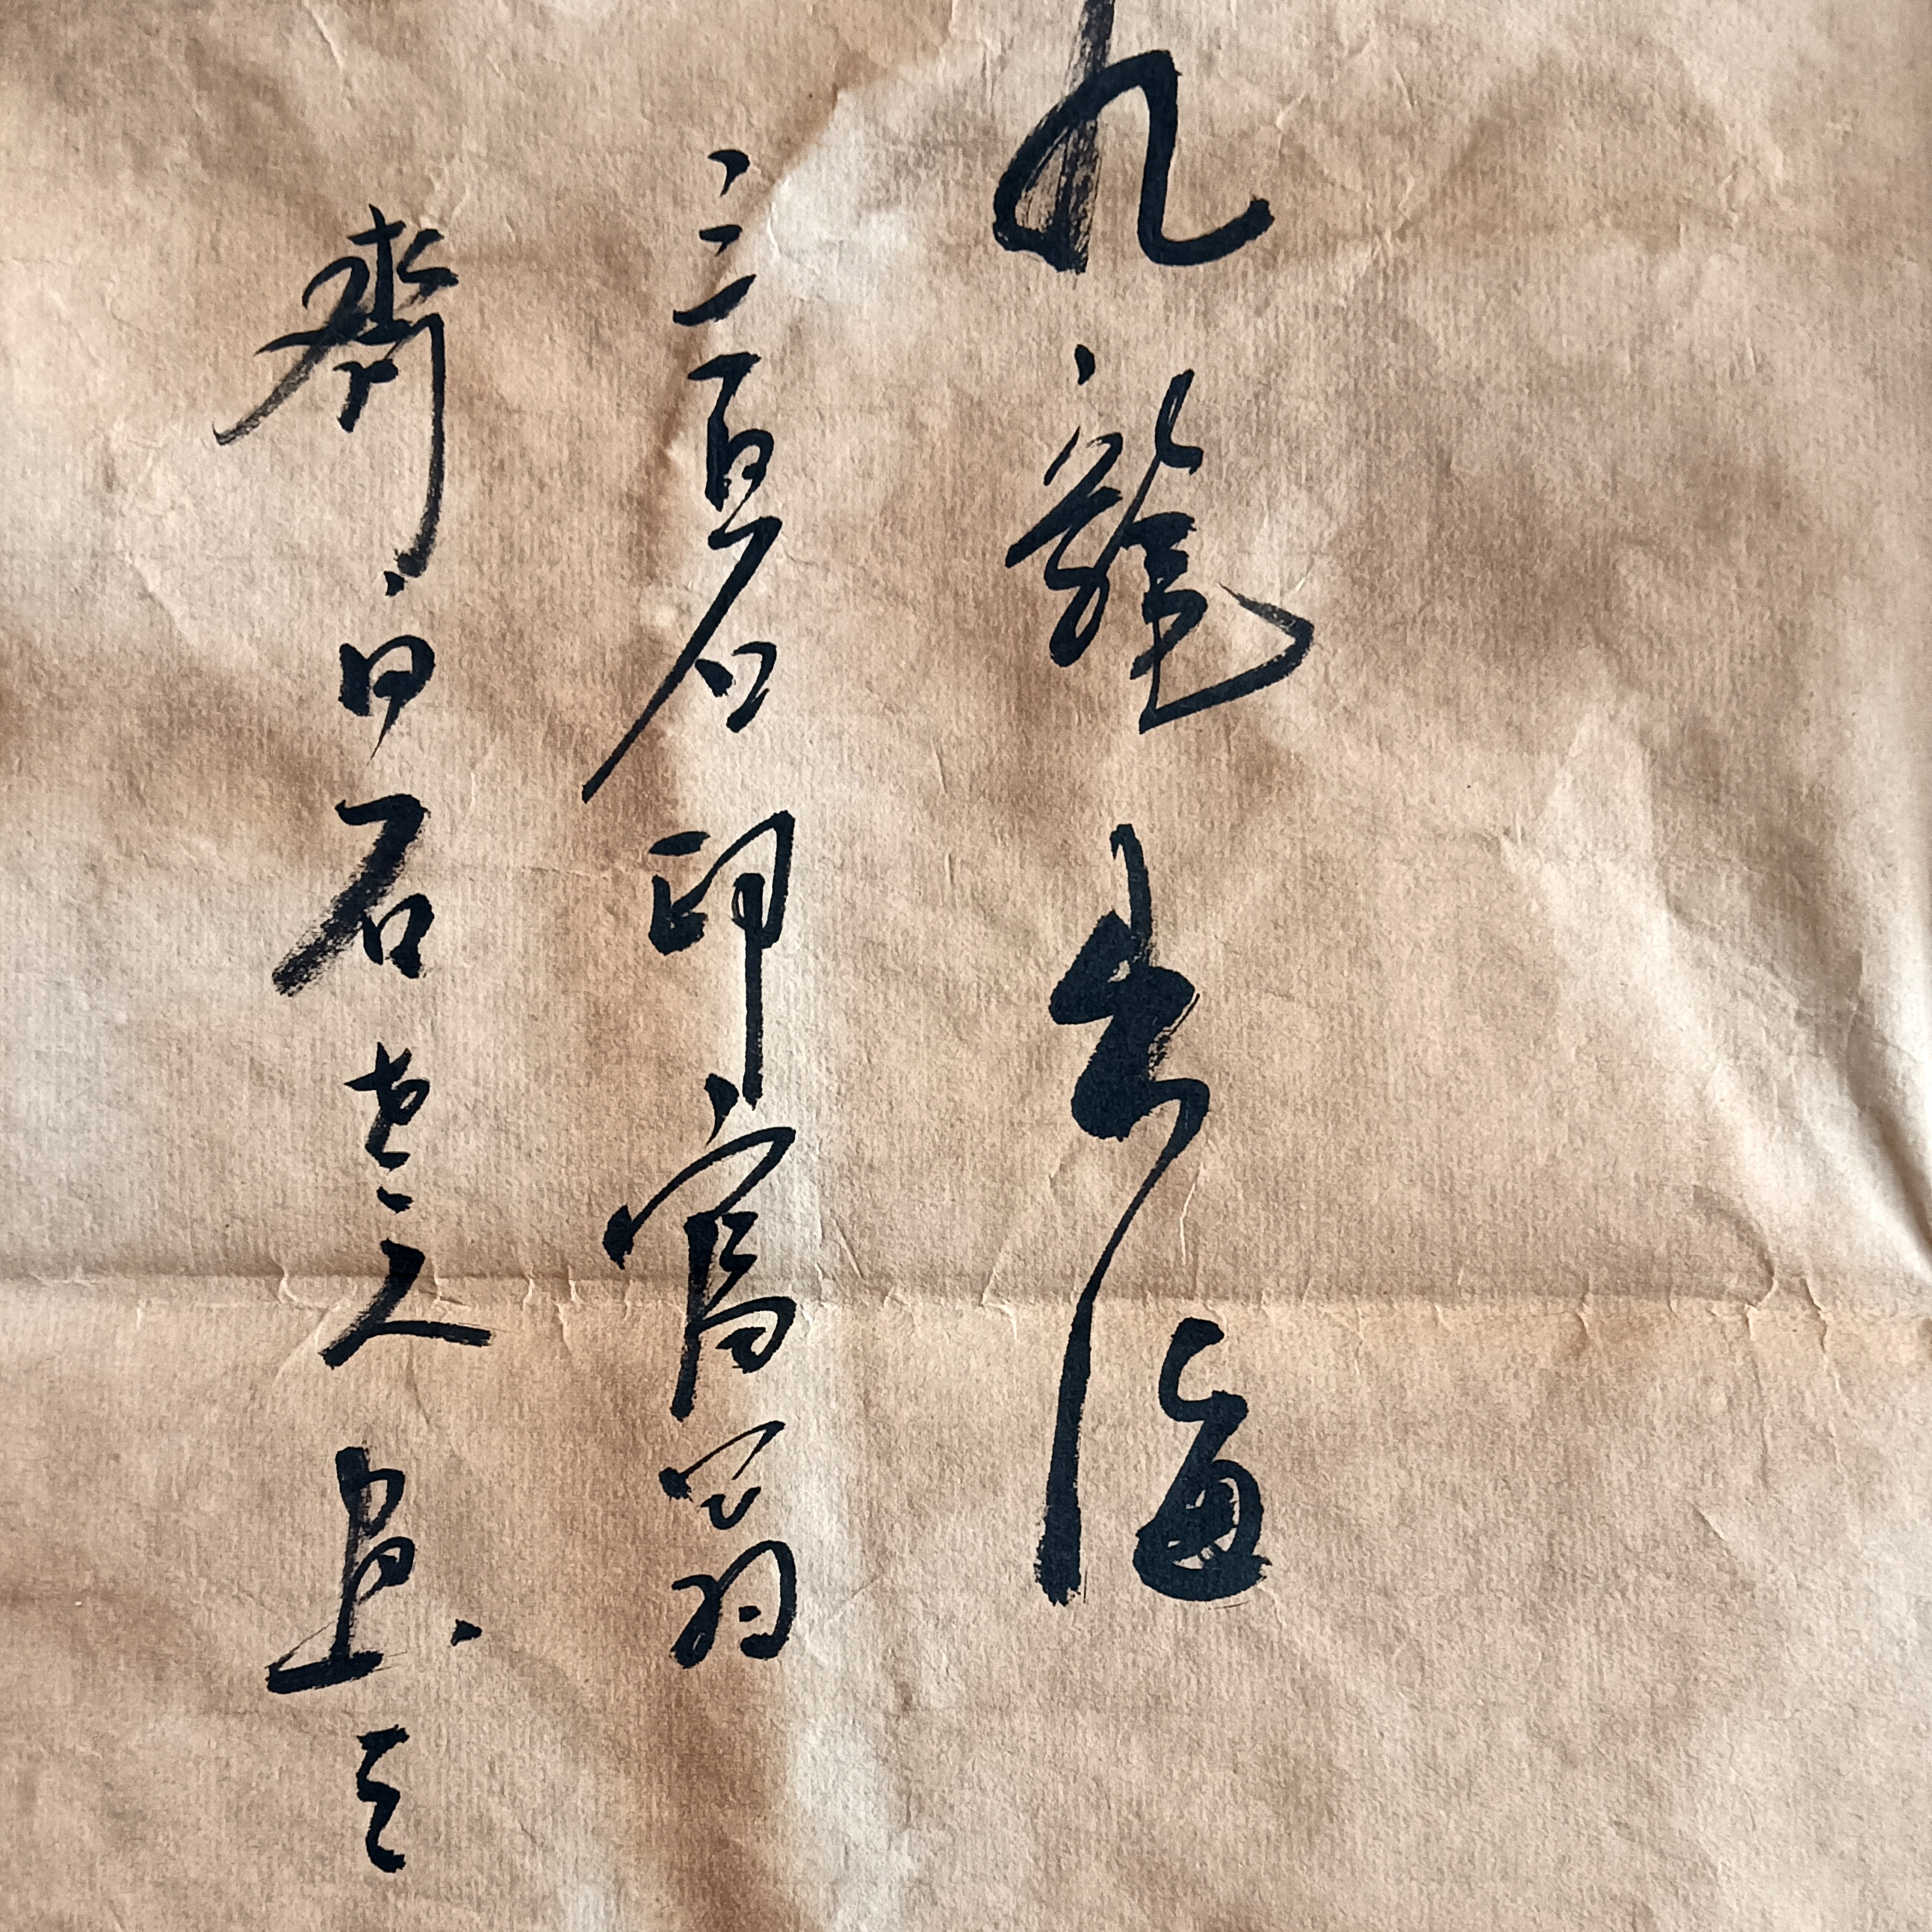 九龍出海
三百石印富翁
齊白石老人畫之